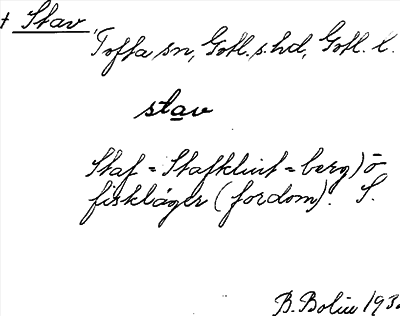 + Stav
Tofta sn, Gotl. s. hd, Gotl. l.
stav
Staf = Stafklint = berg) ö
fiskläger (fordom). S.
B. Bolin 193